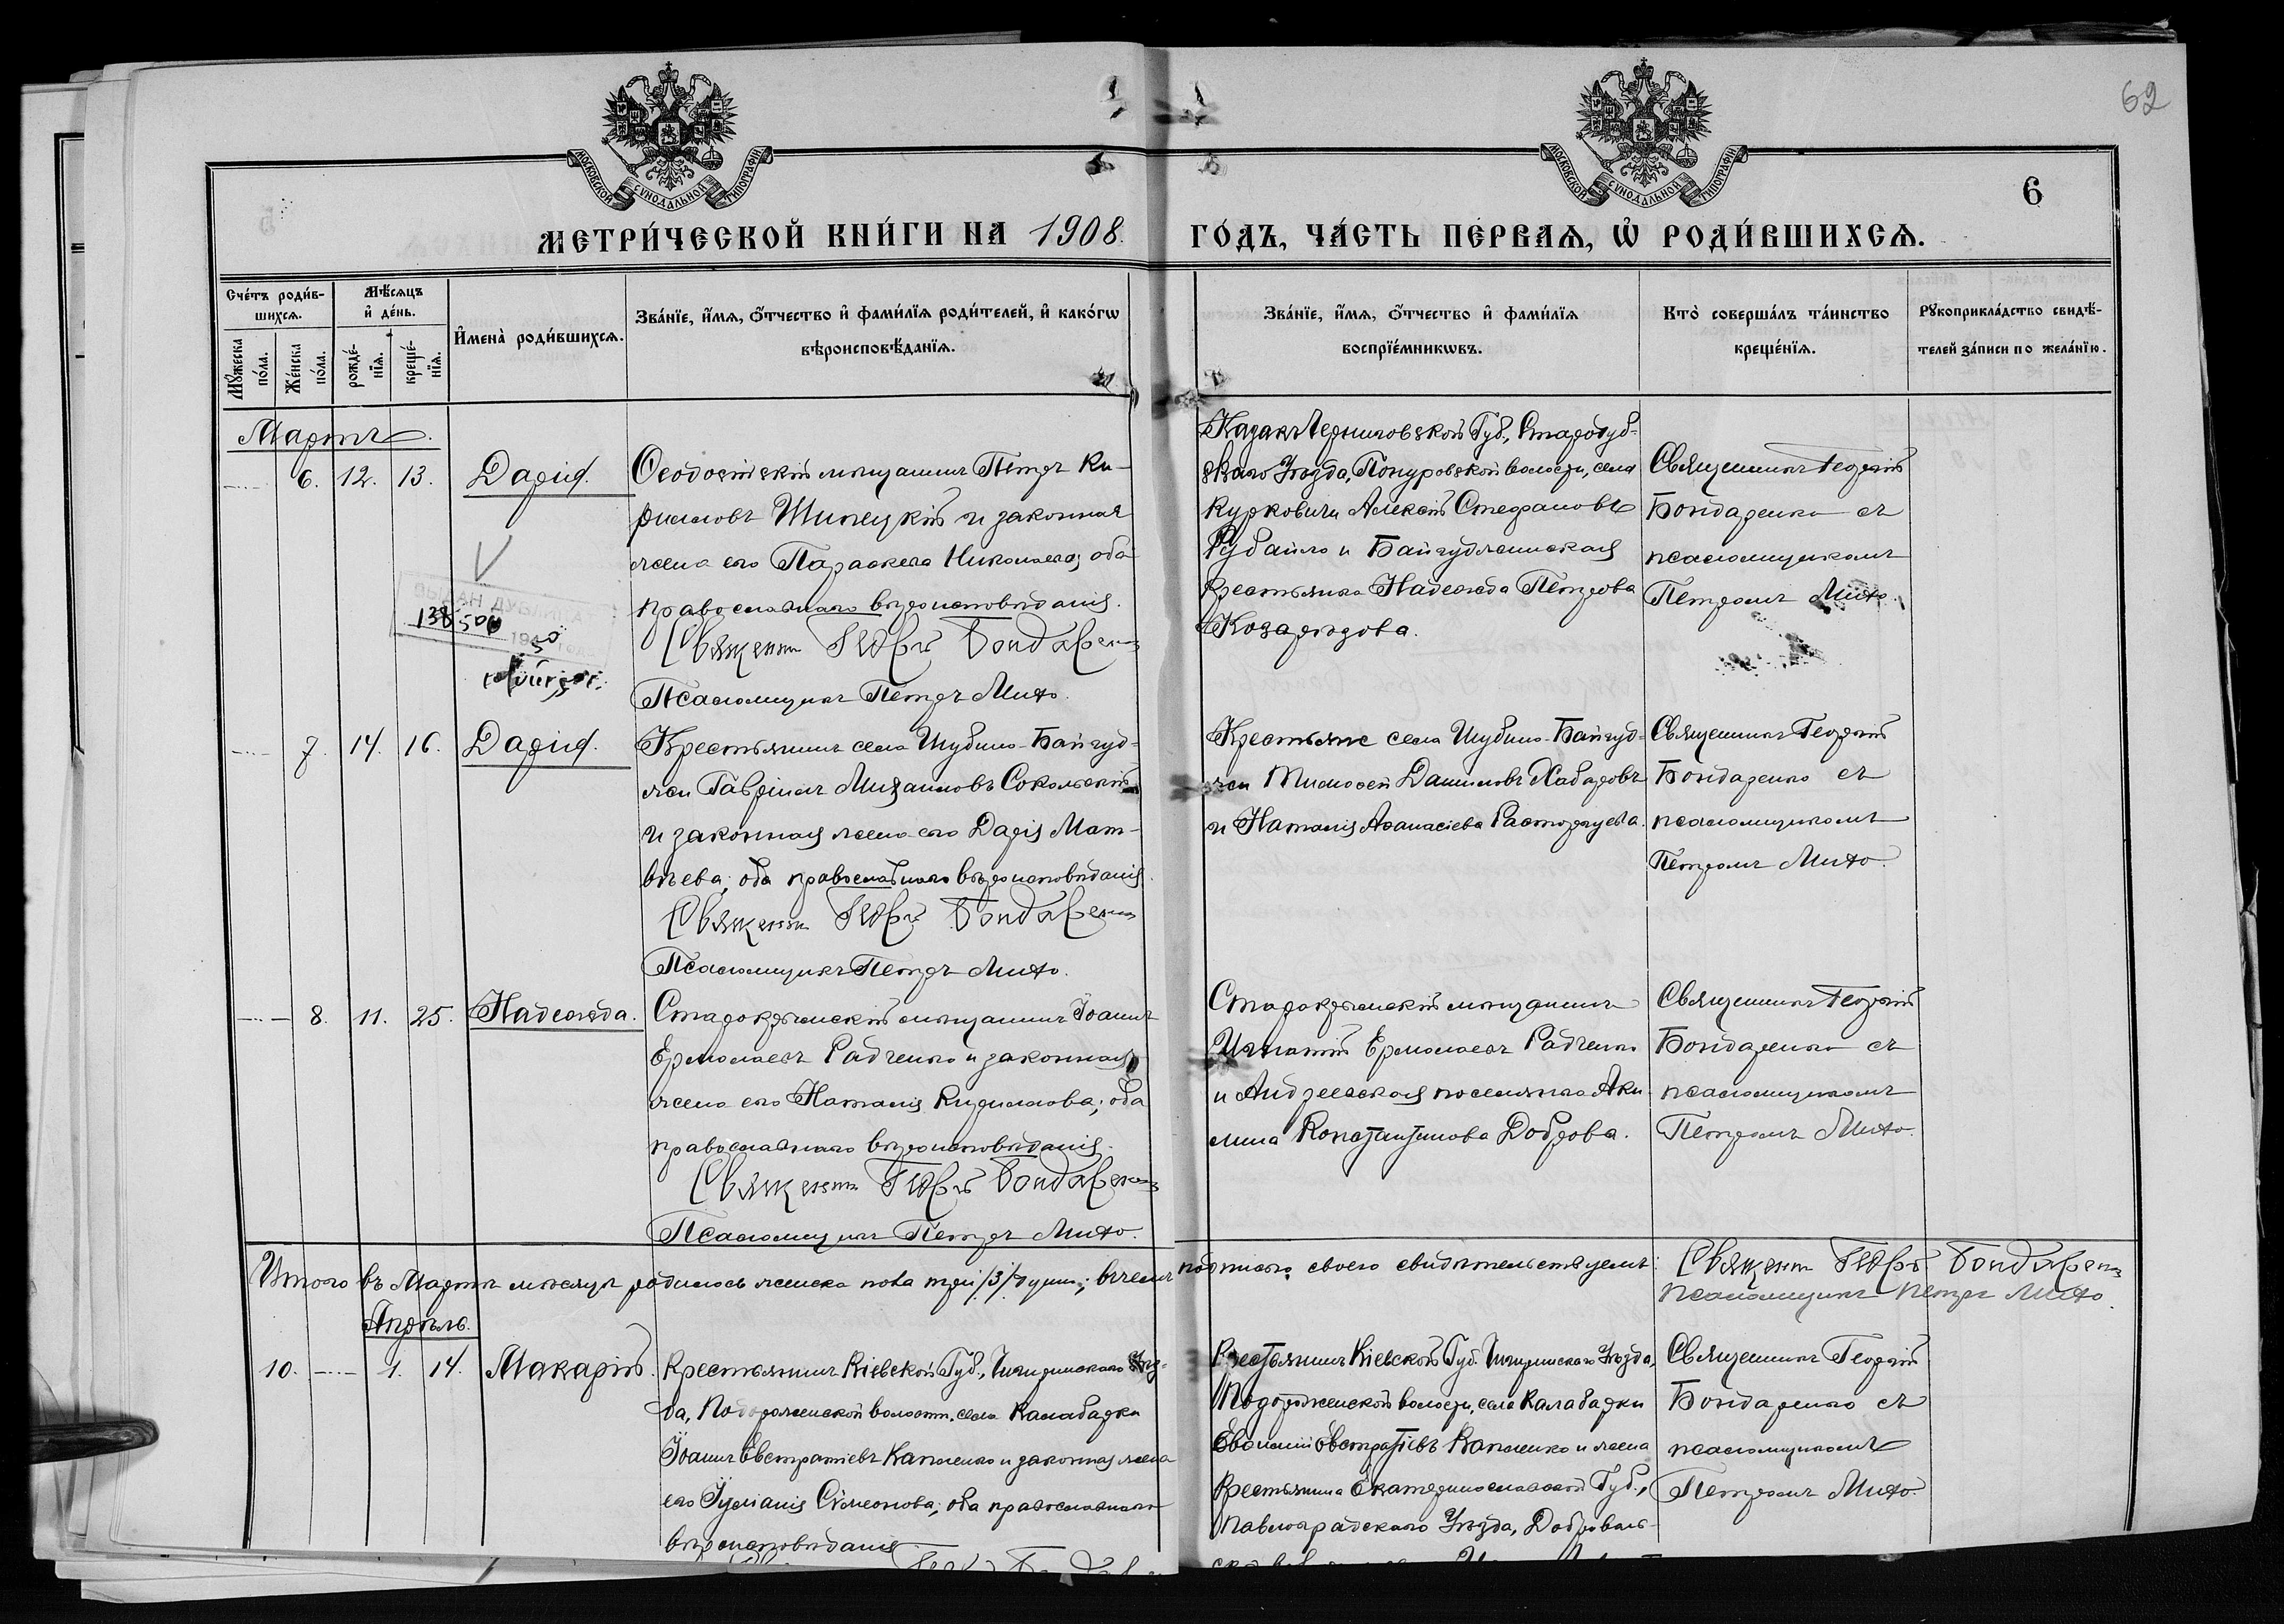 62
МОСКОВСКОЙ СѴНОДАЛЬНОЙ ТИПОГРАФІИ
МОСКОВСКОЙ СѴНОДАЛЬНОЙ ТИПОГРАФІИ
6
МЕТРИ́ЧЕСКОЙ КНИ́ГИ НА 1908. ГО́ДЪ, ЧА́СТЬ ПЕ́РВАѦ, Ѡ҆ РОДИ́ВШИХСѦ.
Сче́тъ роди́в-
шихсѧ.
Мꙋ́жеска по́ла.
Же́нска по́ла.
Мѣ́сѧцъ
и҆ де́нь.
рожде́-
нїѧ.
креще́-
нїѧ.
И҆мена̀ роди́вшихсѧ.
Зва́нїе, и҆́мѧ, ѻ҆́тчество и҆ фами́лїѧ роди́телей, и҆ како́гѡ
вѣроисповѣ́данїѧ.
Зва́нїе, и҆́мѧ, ѻ҆́тчество и҆ фами́лїѧ
воспрїе́мникѡвъ.
Кто̀ соверша́лъ та́инство
креще́нїѧ.
Рꙋкоприкла́дство свидѣ́-
телей за́писи по жела́нїю.
Мартъ.
6. 12. 13. Дарія.
Ѳеодосійскій мѣщанинъ Петръ Ки-
рилловъ Шипецкій и законная
жена его Параскева Николаева; оба
православнаго вѣроисповѣданія.
Священн. Георг. Бондаренко
Псаломщикъ Петръ
Казакъ Черниговской Губ., Стародуб-
скаго Уѣзда, Понуровской волости, села
Курковичи Алексѣй Стефановъ
Рубайло и Байгуджинская
крестьянка Надежда Петрова
Козарѣзова.
Священникъ Георгій
Бондаренко съ
псаломщикомъ
Петромъ
7. 14. 16. Дарія.
Крестьянинъ села Шубино-Байгуд-
жи Гавріилъ Михаиловъ Сокольскій
и законная жена его Дарія Мат-
вѣева; оба православнаго вѣроисповѣданія.
Священн. Георг. Бондаренко
Псаломщикъ Петръ
Крестьяне села Шубино-Байгуд-
жи Тимоѳей Данииловъ Хабаровъ
и Наталія Аѳанасіева Расторгуева.
Священникъ Георгій
Бондаренко съ
псаломщикомъ
Петромъ
8. 11. 25. Надежда.
Старокрымскій мѣщанинъ Іоаннъ
Ермолаевъ Радченко и законная
жена его Наталія Кириллова; оба
православнаго вѣроисповѣданія.
Священн. Георг. Бондаренко
Псаломщикъ Петръ
Старокрымскій мѣщанинъ
Игнатій Ермолаевъ Радченко
и Андреевская поселянка Аки-
лина Константинова Доброва.
Священникъ Георгій
Бондаренко съ
псаломщикомъ
Петромъ
Итого въ Мартѣ мѣсяцѣ родилось женска пола три /3/ души; въ чемъ подписью своею свидѣтельствуемъ: Священн. Георг. Бондаренко
Псаломщикъ Петръ
Апрѣль.
10. 1. 14. Макарій.
Крестьянинъ Кіевской Губ., Чигиринскаго Уѣз-
да, Подорожненской волости, села Калабарки
Іоаннъ Евстратіевъ Капленко и законная жена
его Іуліанія Сѵмеонова; оба православнаго
вѣроисповѣданія
Крестьянинъ Кіевской Губ. Чигиринскаго Уѣзда,
Подорожненской волости, села Калабарки
Евѳимій Евстратіевъ Капленко и жена
крестьянина Екатеринославской Губ.,
Павлоградскаго Уѣзда, Доброволь-
Священникъ Георгій
Бондаренко съ
псаломщикомъ
Петромъ